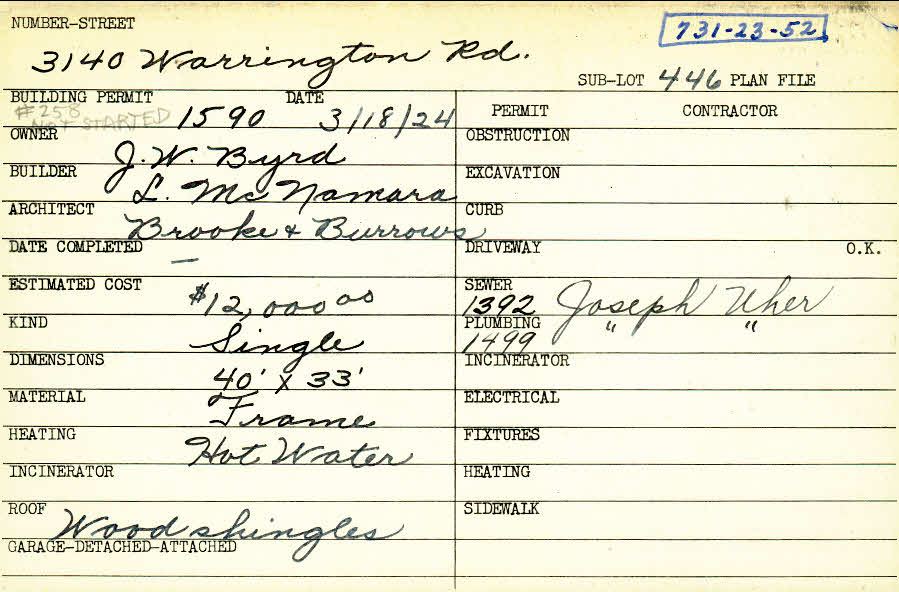 NUMBER-STREET
731-23-52
3140 Warrington Rd.
SUB-LOT 446 PLAN FILE
BUILDING PERMIT 1590 DATE 3/18/24
#258
NOT STARTED
OWNER J.W. Byrd
BUILDER L. McNamara
ARCHITECT Brooke & Burrows
DATE COMPLETED —
ESTIMATED COST $12,000.00
KIND Single
DIMENSIONS 40' x 33'
MATERIAL Frame
HEATING Hot Water
INCINERATOR
ROOF Wood shingles
GARAGE-DETACHED-ATTACHED
PERMIT CONTRACTOR
OBSTRUCTION
EXCAVATION
CURB
DRIVEWAY O.K.
SEWER 1392 Joseph Uher
PLUMBING 1499 " "
INCINERATOR
ELECTRICAL
FIXTURES
HEATING
SIDEWALK